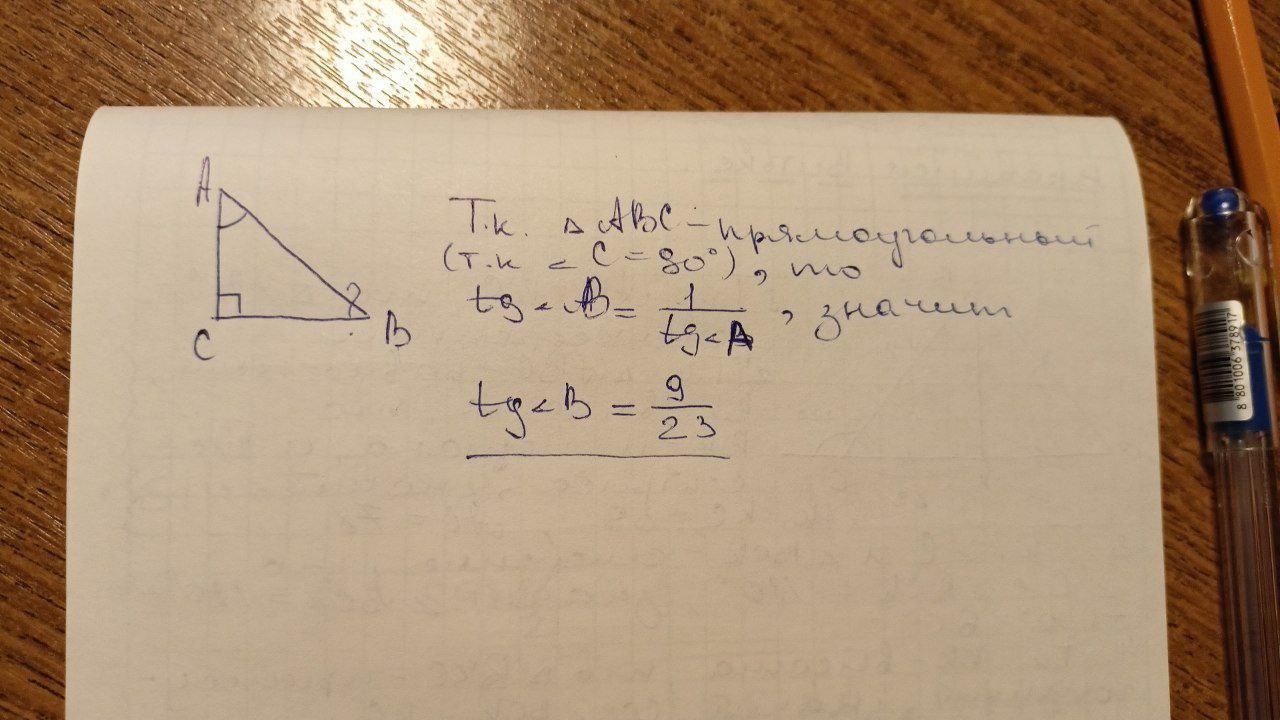 A
C
B
Т.к. △ ABC – прямоугольный
(т.к ∠ C = 90°), то
tg ∠ B = 1/tg∠A, значит
tg∠B = 9/23
8 801006 378917